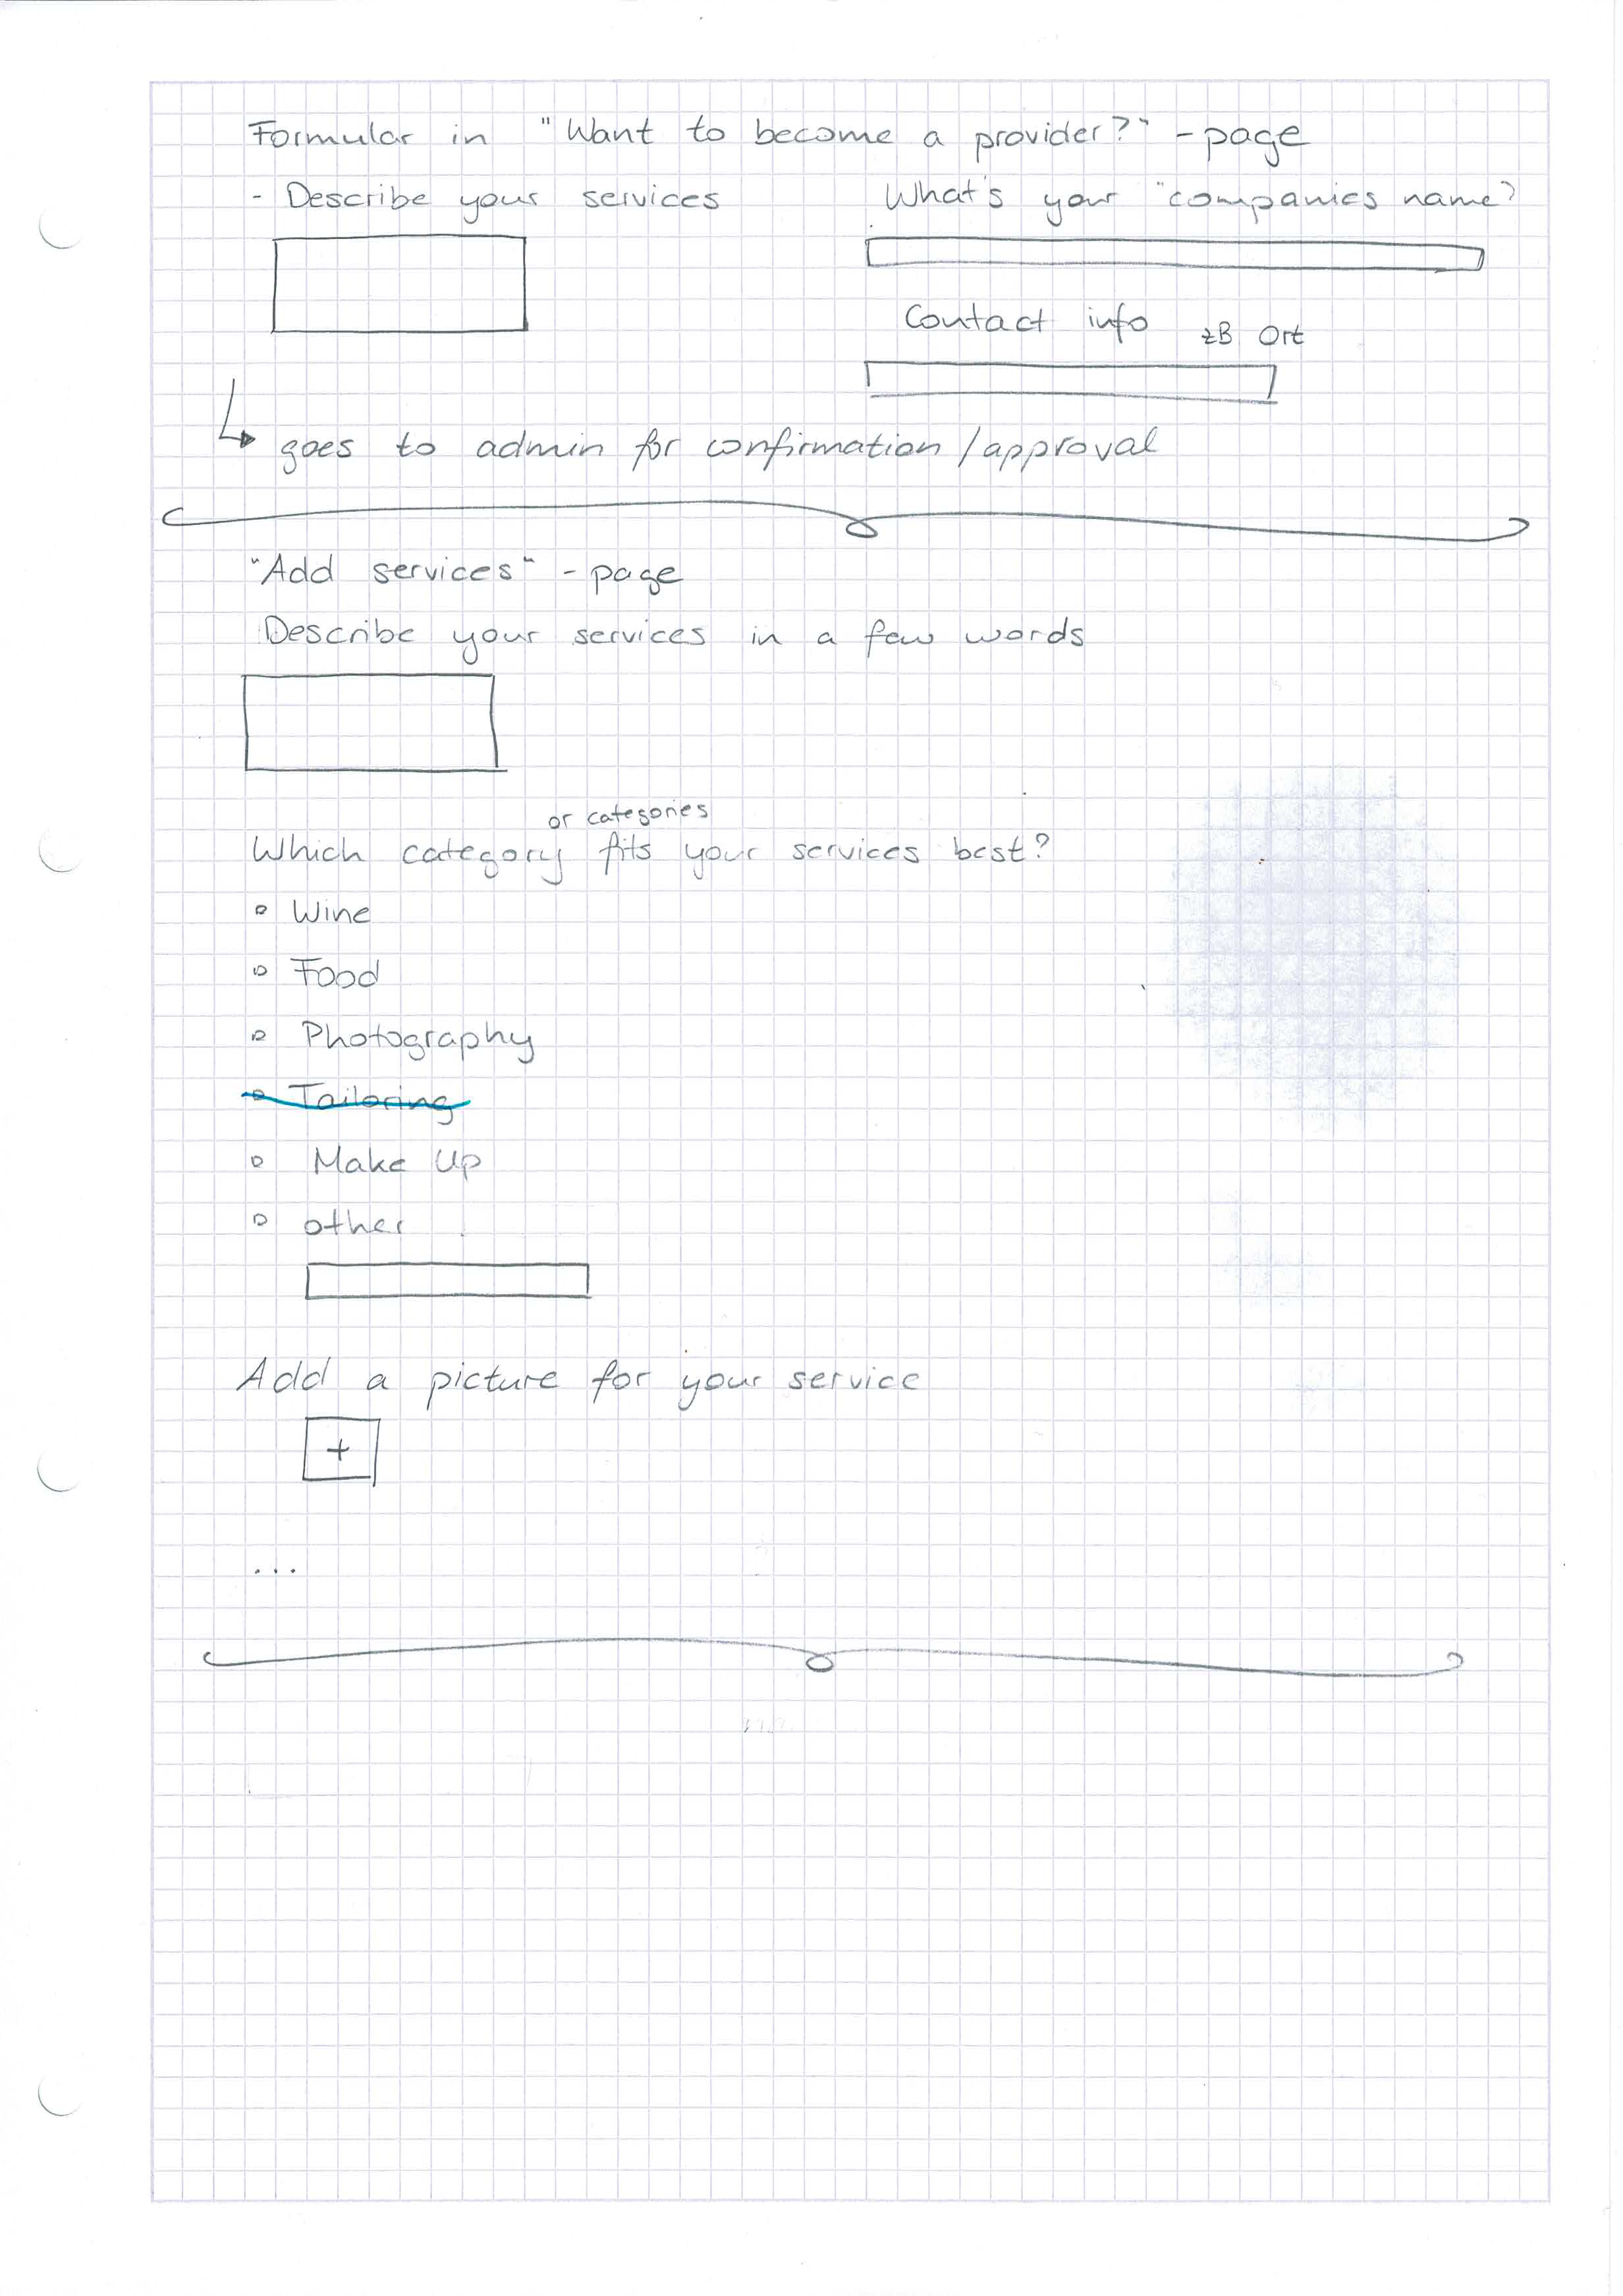 Formular in "Want to become a provider?" - page
- Describe your services
What's your "companies name?
Contact info zB Ort
goes to admin for confirmation / approval
"Add services" - page
Describe your services in a few words
or categories
Which category fits your services best?
Wine
Food
Photography
Tailoring
Make Up
other
Add a picture for your service
+
...